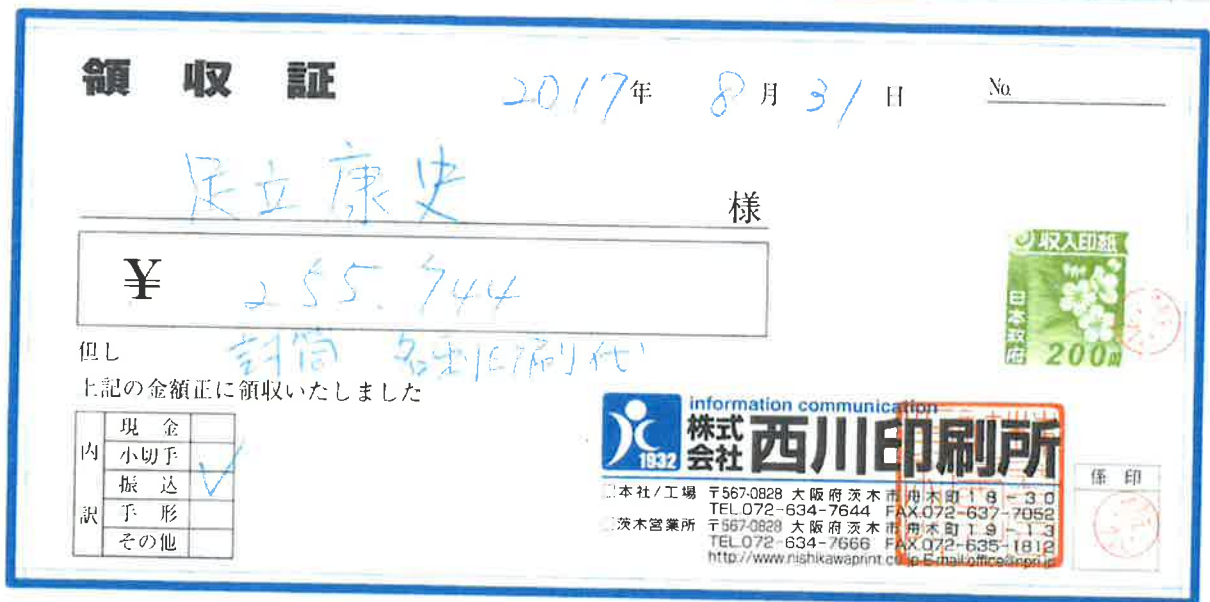 領収証 2017年 8月31日 No.
足立康史 様
¥ 255.744
但し 封筒 名刺印刷代
上記の金額正に領収いたしました
収入印紙
日本政府
200円
内訳
現金
小切手
振込 ✓
手形
その他
information communication
1932 株式会社 西川印刷所
本社/工場 〒567-0828 大阪府茨木市舟木町18-30
TEL.072-634-7644 FAX.072-637-7052
茨木営業所 〒567-0828 大阪府茨木市舟木町19-13
TEL.072-634-7666 FAX.072-635-1812
http://www.nishikawaprint.co.jp E-mail:office@npri.jp
係印